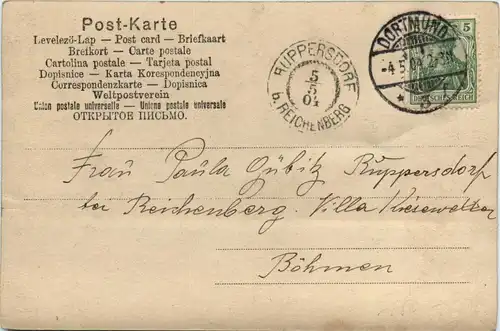 Post-Karte
Levelező-Lap — Post card — Briefkaart
Brefkort — Carte postale
Cartolina postale — Tarjeta postal
Dopisnice — Karta Korespondencyjna
Correspondenzkarte — Dopisnica
Weltpostverein
Union postale universelle — Unione postale universale
ОТКРЫТОЕ ПИСЬМО.
RUPPERSDORF
5
5
04
b. REICHENBERG
DORTMUND
-4.5.04.
5
DEUTSCHES REICH
Frau Paula Gübitz Ruppersdorf
bei Reichenberg. Villa Kiesewetter
Böhmen